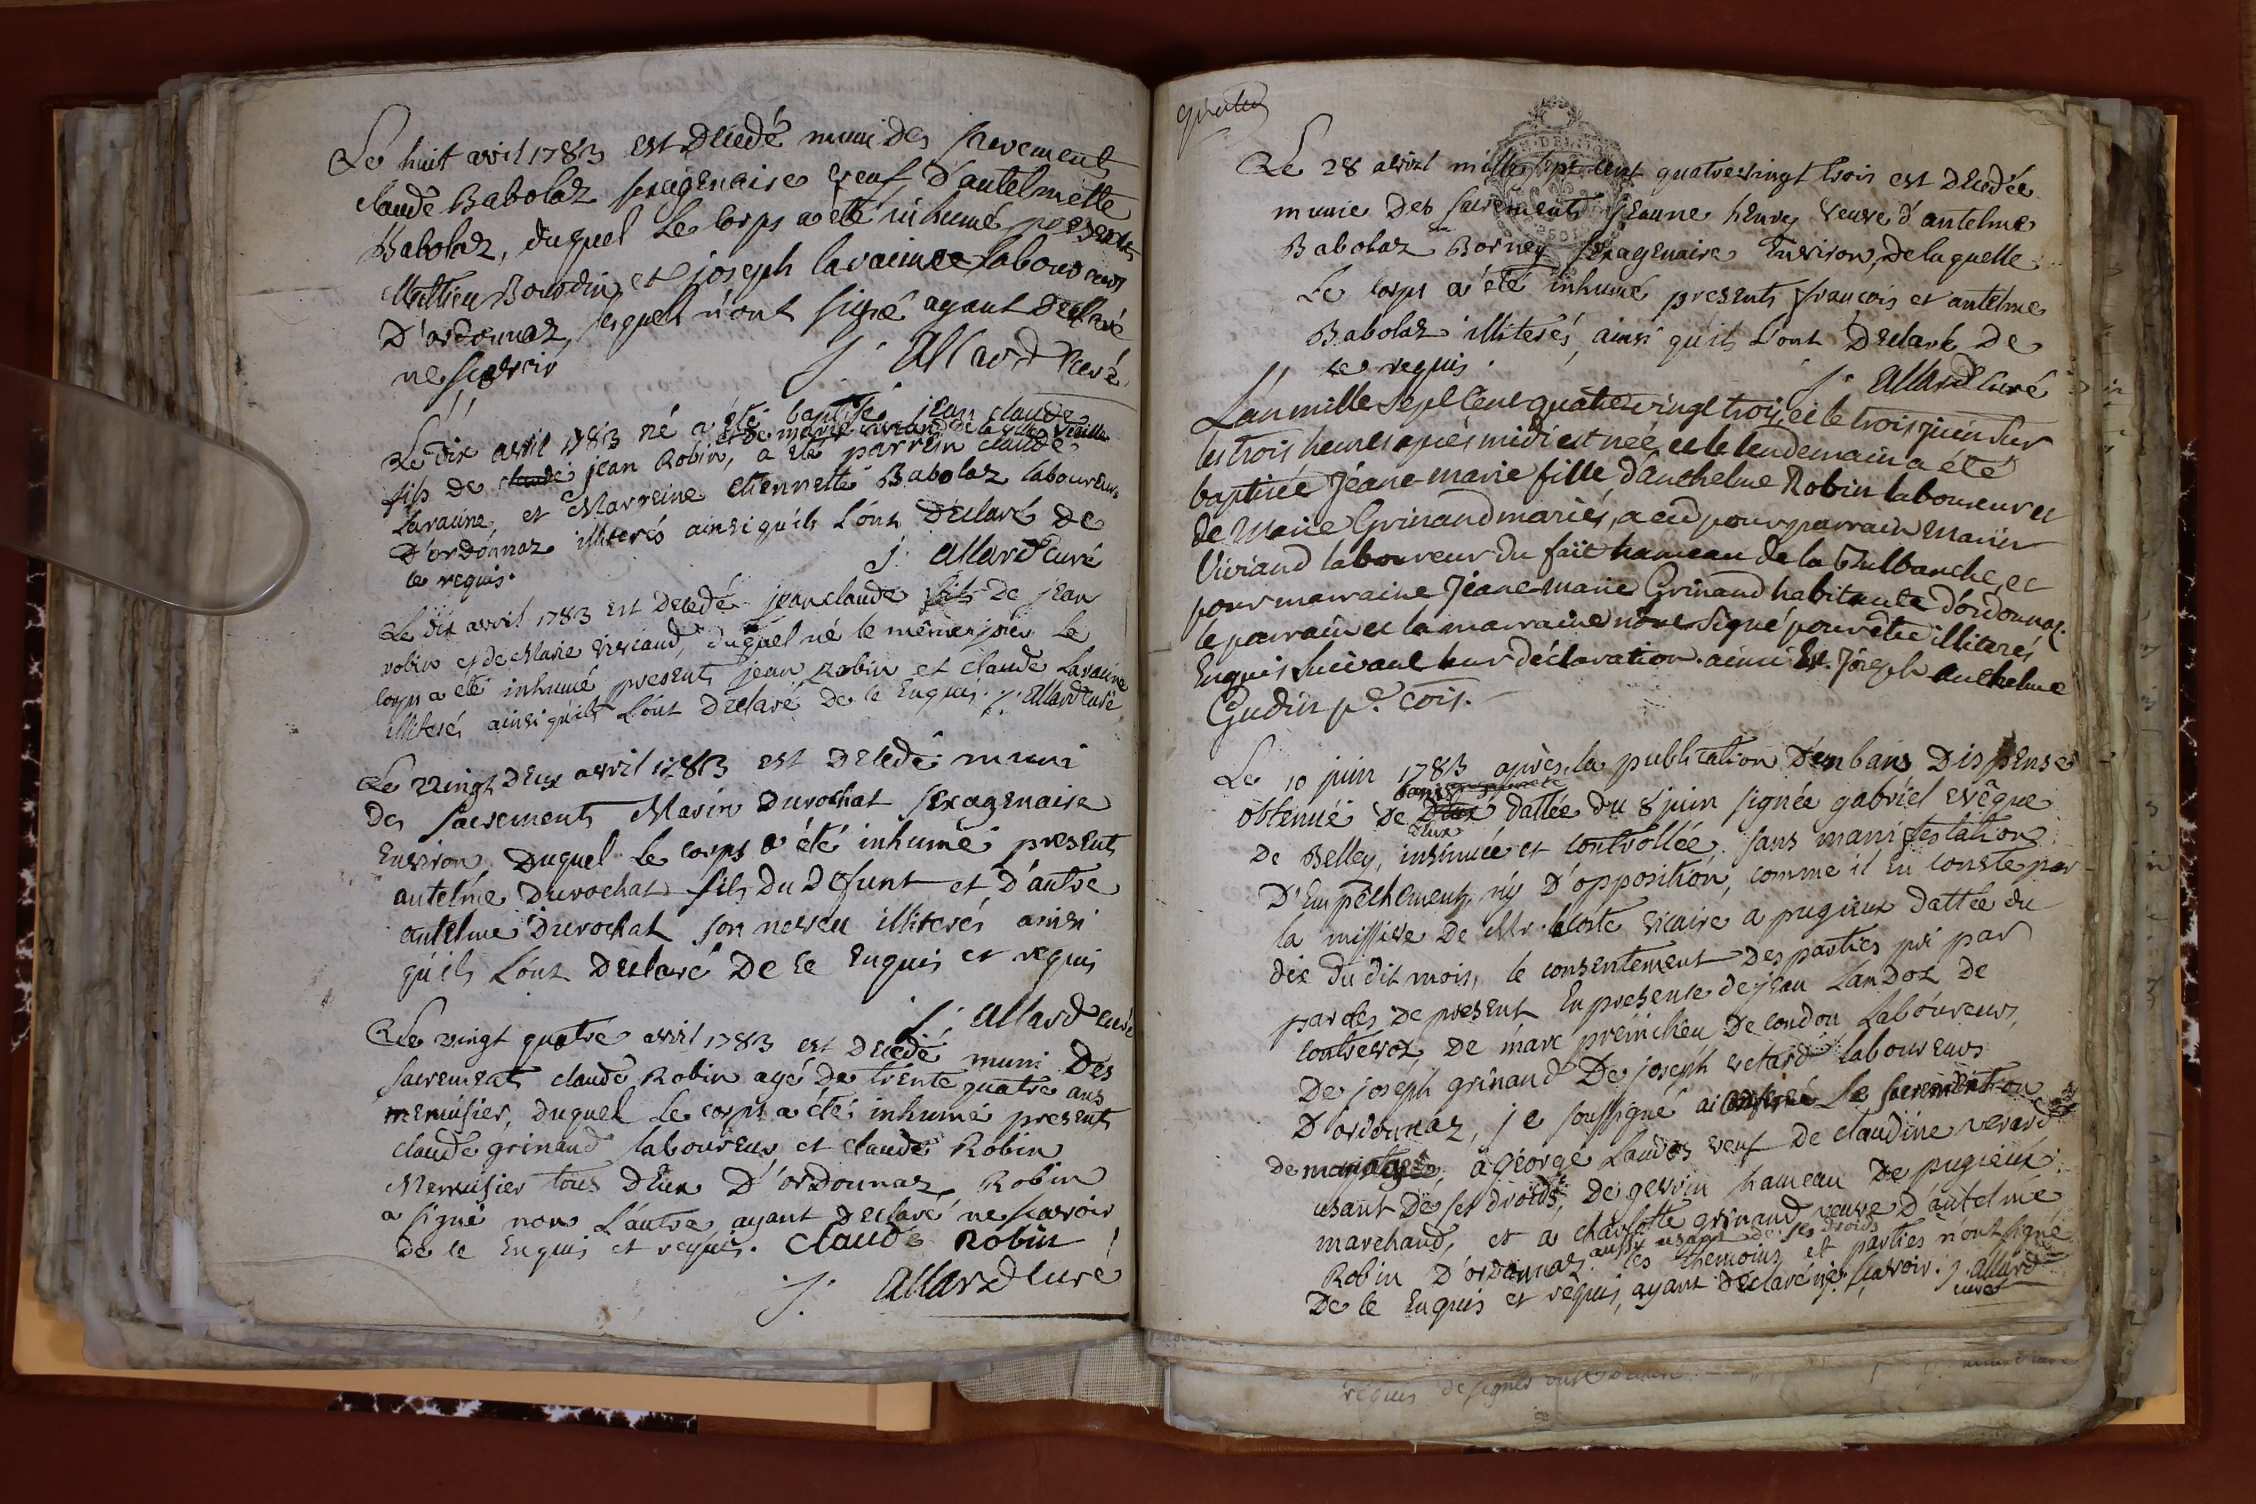 Le huit avril 1783 est décédé muni des sacrements
claude Babolaz sexagenaire veuf d'antelmette
Babolaz, duquel le corps a été inhumé presents
Mathieu Bourdin et joseph lavaine laboureurs
D'ordonnaz, lesquels n'ont signé ayant declaré
ne scavoir
J. allard curé
Le dix avril 1783 né a été baptisé jean claude
et de marie viviand de la ville vieille
fils de jean Robin, a été parrein claude
Lavaine, et Marreine etiennette Babolaz laboureurs
D'ordonnaz illiterés ainsi qu'ils l'ont declaré de
ce requis.
J. allard curé
Le dix avril 1783 est decedé jean claude fils de jean
robin et de Marie viviand, duquel né le même jour le
corps a été inhumé presents jean Robin et claude Lavaine
illiterés ainsi qu'ils l'ont declaré de ce enquis. J. allard curé
Le vingt deux avril 1783 est decedé muni
des sacrements Marin durochat sexagenaire
environ duquel le corps a été inhumé present
antelme durochat fils du defunt et d'autre
antelme durochat son neveu illiterés ainsi
qu'ils l'ont declaré de ce enquis et requis
J. allard curé
Le vingt quatre avril 1783 est decédé muni des
sacrements claude Robin agé de trente quatre ans
menusier, duquel le corps a été inhumé presents
claude grinand laboureur et claude Robin
Menusier tous deux D'ordonnaz Robin
a signé non l'autre ayant declaré ne scavoir
de ce enquis et requis. claude Robin
J. allard curé
Le 28 avril mille sept cent quatrevingt trois est decedée
munie des sacrements jeanne henry veuve d'antelme
Babolaz Borney sexagenaire environ, de laquelle
le corps a été inhumé presents françois et antelme
Babolaz illiterés, ainsi qu'ils l'ont declaré de
ce requis
J. allard curé
L'an mille sept cent quatre vingt trois, et le trois juin sur
les trois heures après midi est née et le lendemain a été
baptisée Jeane-marie fille d'Anthelme Robin laboureur et
de Marie Grinand mariés, a eu pour parrain Marin
Viviand laboureur du fait hameau de la , et
pour marraine Jeane-marie Grinand habitante d'ordonnaz.
le parrain et la marraine n'ont signé pour être illiterés
Enquis suivant leur déclaration. ainsi est. Joseph Anthelme
Gudin p.e cois.
Le 10 juin 1783 après la publication d'un bans dispense
obtenue de deux bans dattée du 8 juin signée gabriel evêque
de Belley, insinuée et controllée. sans manifestation
D'empêchement ny d'opposition, comme il en conste par
la missive de Mr. vicaire a pugieux dattée du
dix du dit mois, le consentement des parties pri par
paroles de present en presence de jean Landoz de
contrevoz, de marc preinchieu de condon laboureurs,
De joseph grinand De joseph vetard laboureurs
D'ordonnaz, je soussigné ai
de mariage, à george Landoz veuf de claudine verard
usant de ses droits, de gevrin hameau de pugieux
marchand, et a charlotte grinand veuve d'antelme
Robin D'ordonnaz aussy usant de ses droits les themoins et parties n'ont signé
De ce enquis et requis, ayant déclaré ne scavoir. J. allard
curé
requis de signer